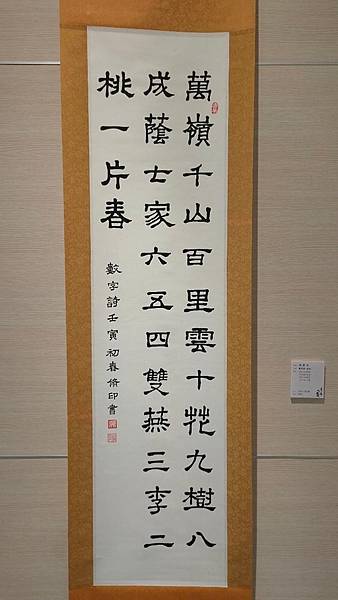 萬嶺千山百里雲十花九樹八
成蔭士家六五四雙燕三李二
桃一片春
數字詩壬寅初春脩印書